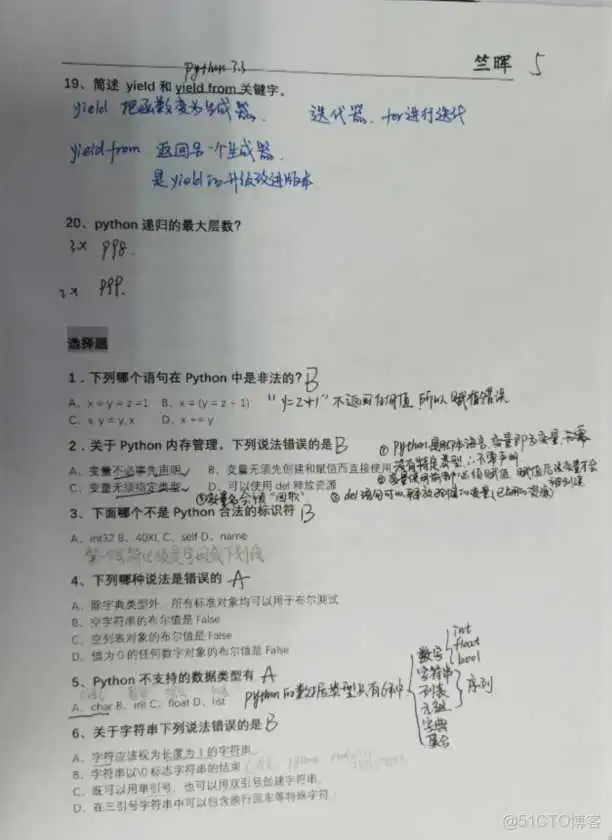 python 3.3
竺晖 5
19、简述 yield 和 yield from 关键字。
yield 把函数变为生成器. 迭代器. for进行迭代
yield from 返回另一个生成器.
是yield的升级改进版本
20、python 递归的最大层数?
998.
999.
选择题
1．下列哪个语句在 Python 中是非法的? B
A、x = y = z =1 B、x = (y = z + 1) "y=z+1" 不返回任何值 所以 赋值错误
C、x, y = y, x D、x += y
2．关于 Python 内存管理，下列说法错误的是 B
A、变量不必事先声明 B、变量无须先创建和赋值而直接使用
C、变量无须指定类型 D、可以使用 del 释放资源
3、下面哪个不是 Python 合法的标识符 B
A、int32 B、40XL C、self D、name
4、下列哪种说法是错误的 A
A、除字典类型外，所有标准对象均可以用于布尔测试
B、空字符串的布尔值是 False
C、空列表对象的布尔值是 False
D、值为 0 的任何数字对象的布尔值是 False
5、Python 不支持的数据类型有 A
A、char B、int C、float D、list
python 的数据类型只有6种
数字 int float bool
字符串
列表
元组
序列
字典
集合
6、关于字符串下列说法错误的是 B
A、字符应该视为长度为 1 的字符串
B、字符串以\0 标志字符串的结束
C、既可以用单引号，也可以用双引号创建字符串
D、在三引号字符串中可以包含换行回车等特殊字符
@51CTO博客